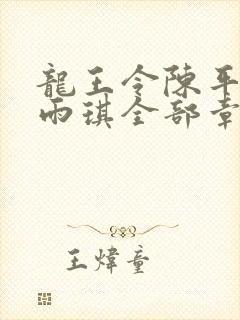 龍王令陳平
雨琪全部章
王煒童